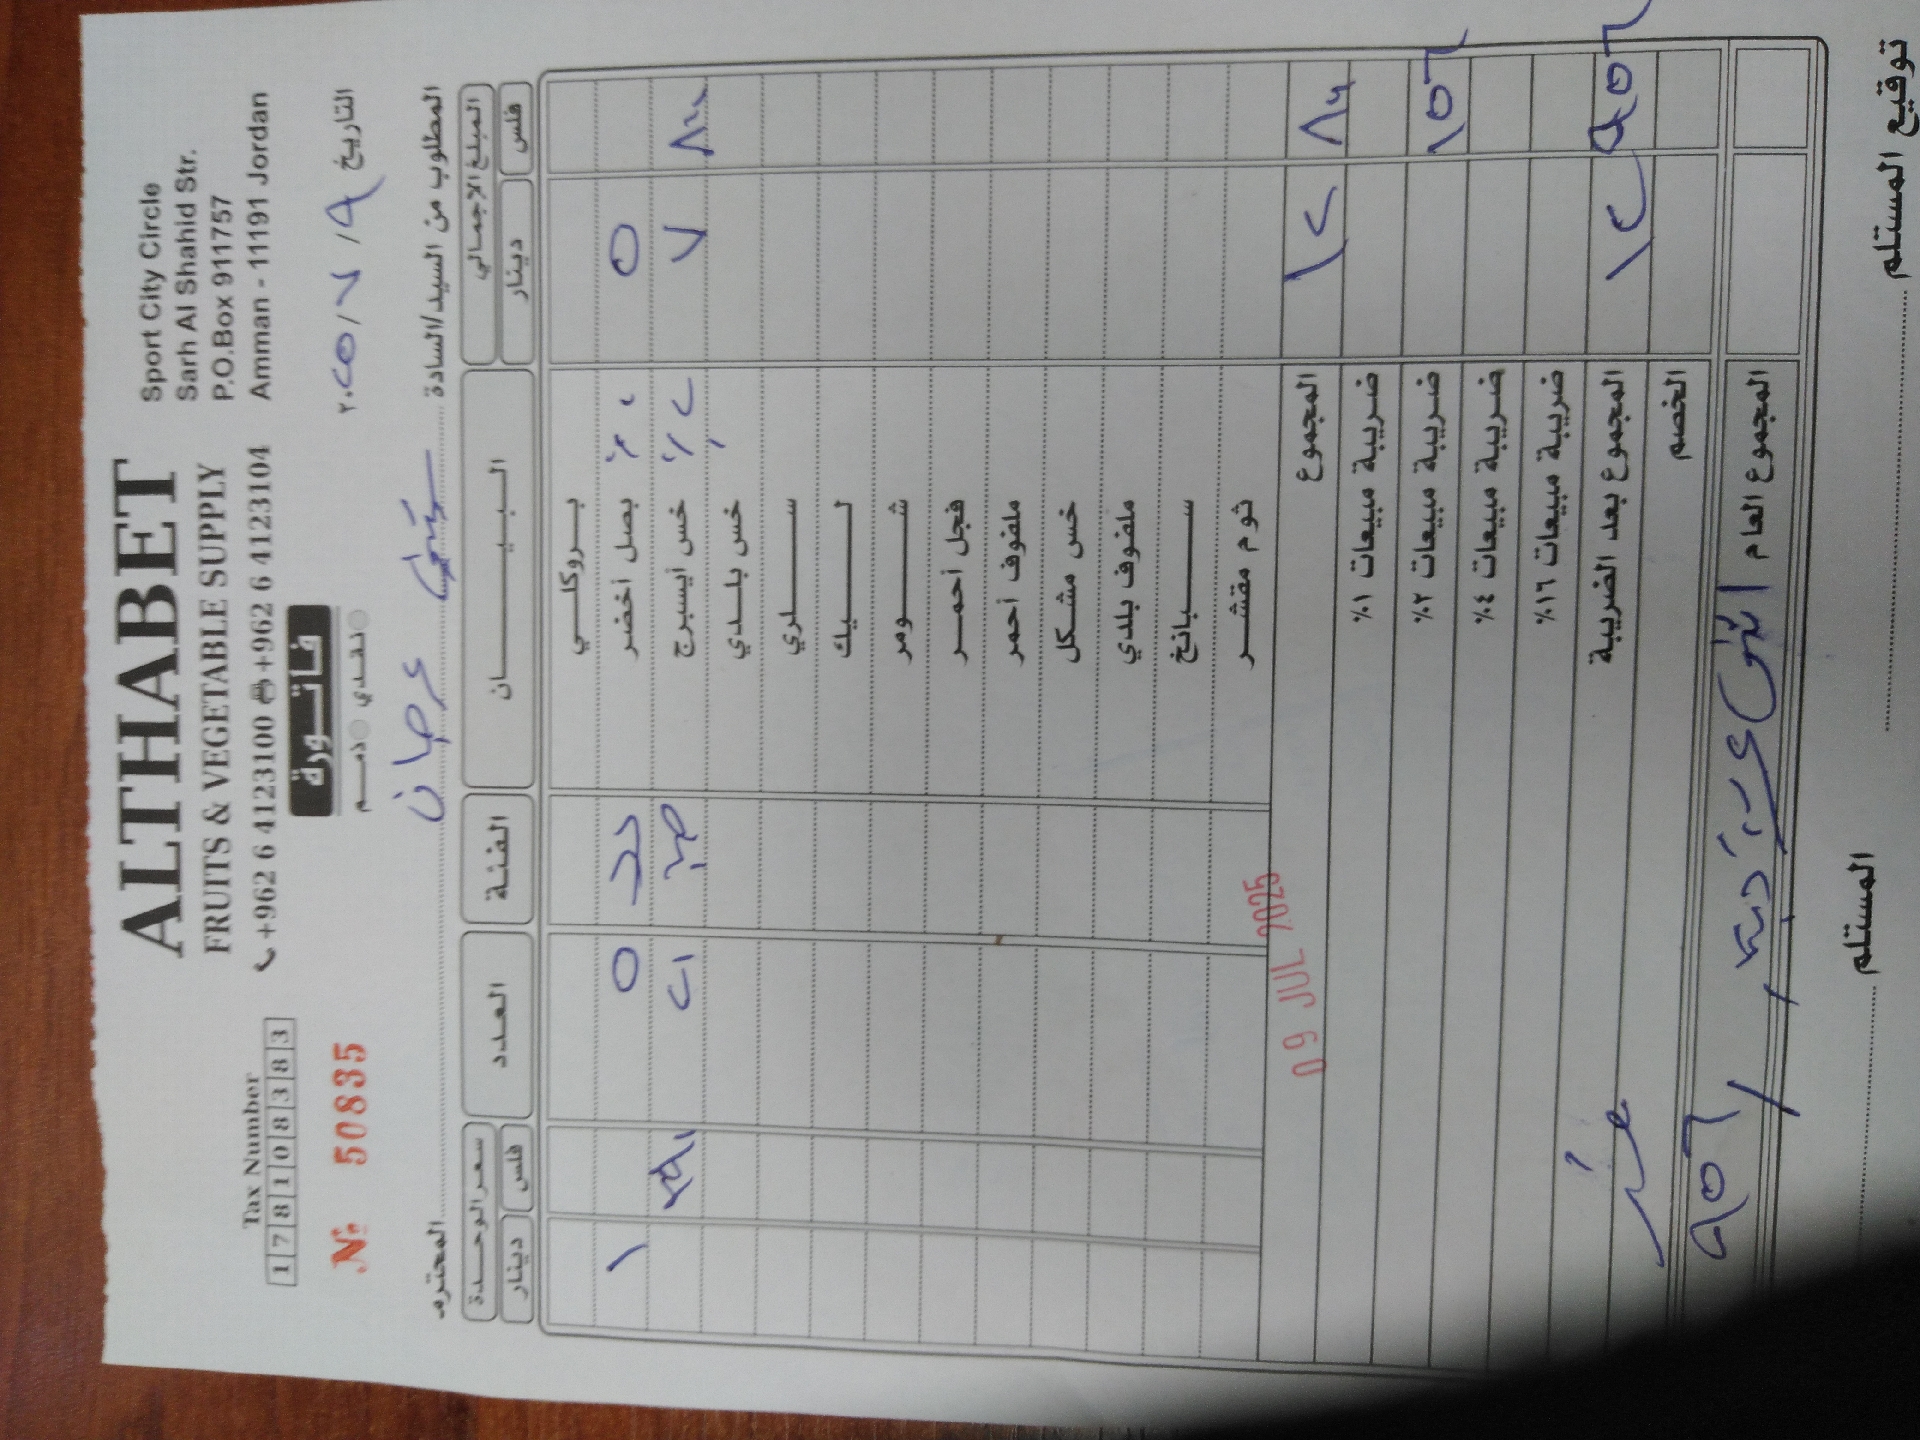 ALTHABET
FRUITS & VEGETABLE SUPPLY
+962 6 4123100 +962 6 4123104
Sport City Circle
Sarh Al Shahid Str.
P.O.Box 911757
Amman - 11191 Jordan
Tax Number
1 7 8 1 0 8 3 8 3
№ 50835
فاتورة
ذمم نقدي
التاريخ ٩ / ٧ / ٢٠٢٥
المطلوب من السيد/السادة عرجان المحترم
المبلغ الاجمالي البيان الفئة العدد سعر الوحدة
فلس دينار فلس دينار
بروكلي
بصل أخضر ٥ ٥ ١
خس أيسبرج ٧
خس بلدي
سلري
ليك
شومر
فجل أحمر
ملفوف أحمر
خس مشكل
ملفوف بلدي
سبانخ
ثوم مقشر
09 JUL 2025
المجموع ١٢
ضريبة مبيعات ١%
ضريبة مبيعات ٢% ١٥٦
ضريبة مبيعات ٤%
ضريبة مبيعات ١٦%
المجموع بعد الضريبة ١٢ ٩٥٦
الخصم
المجموع العام ٩٥٦
المستلم
توقيع المستلم